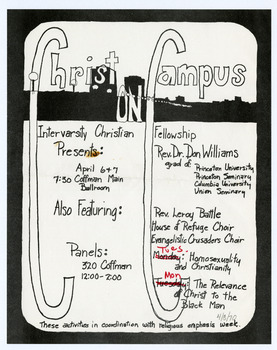 Christ
ON
Campus
Intervarsity Christian
Fellowship
Presents:
April 6&7
7:30 Coffman Main
Ballroom
Rev. Dr. Don Williams
grad of: Princeton University,
Princeton Seminary
Columbia University
Union Seminary
Also Featuring:
Rev. Leroy Battle
House of Refuge Choir
Evangelistic Crusaders Choir
Panels:
320 Coffman
12:00-2:00
Tues.
Monday: Homosexuality
and Christianity
Mon
Tuesday: The Relevance
of Christ to the
Black Man
These activities in coordination with religious emphasis week.